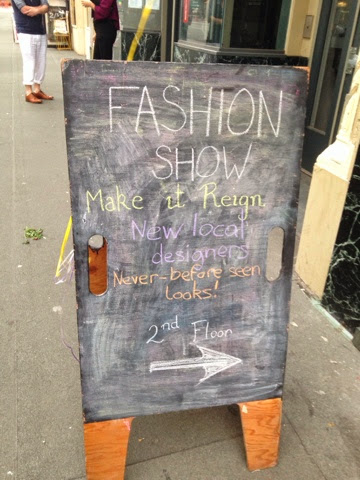 FASHION
SHOW
Make it Reign
New local
designers
Never-before seen
looks!
2nd Floor